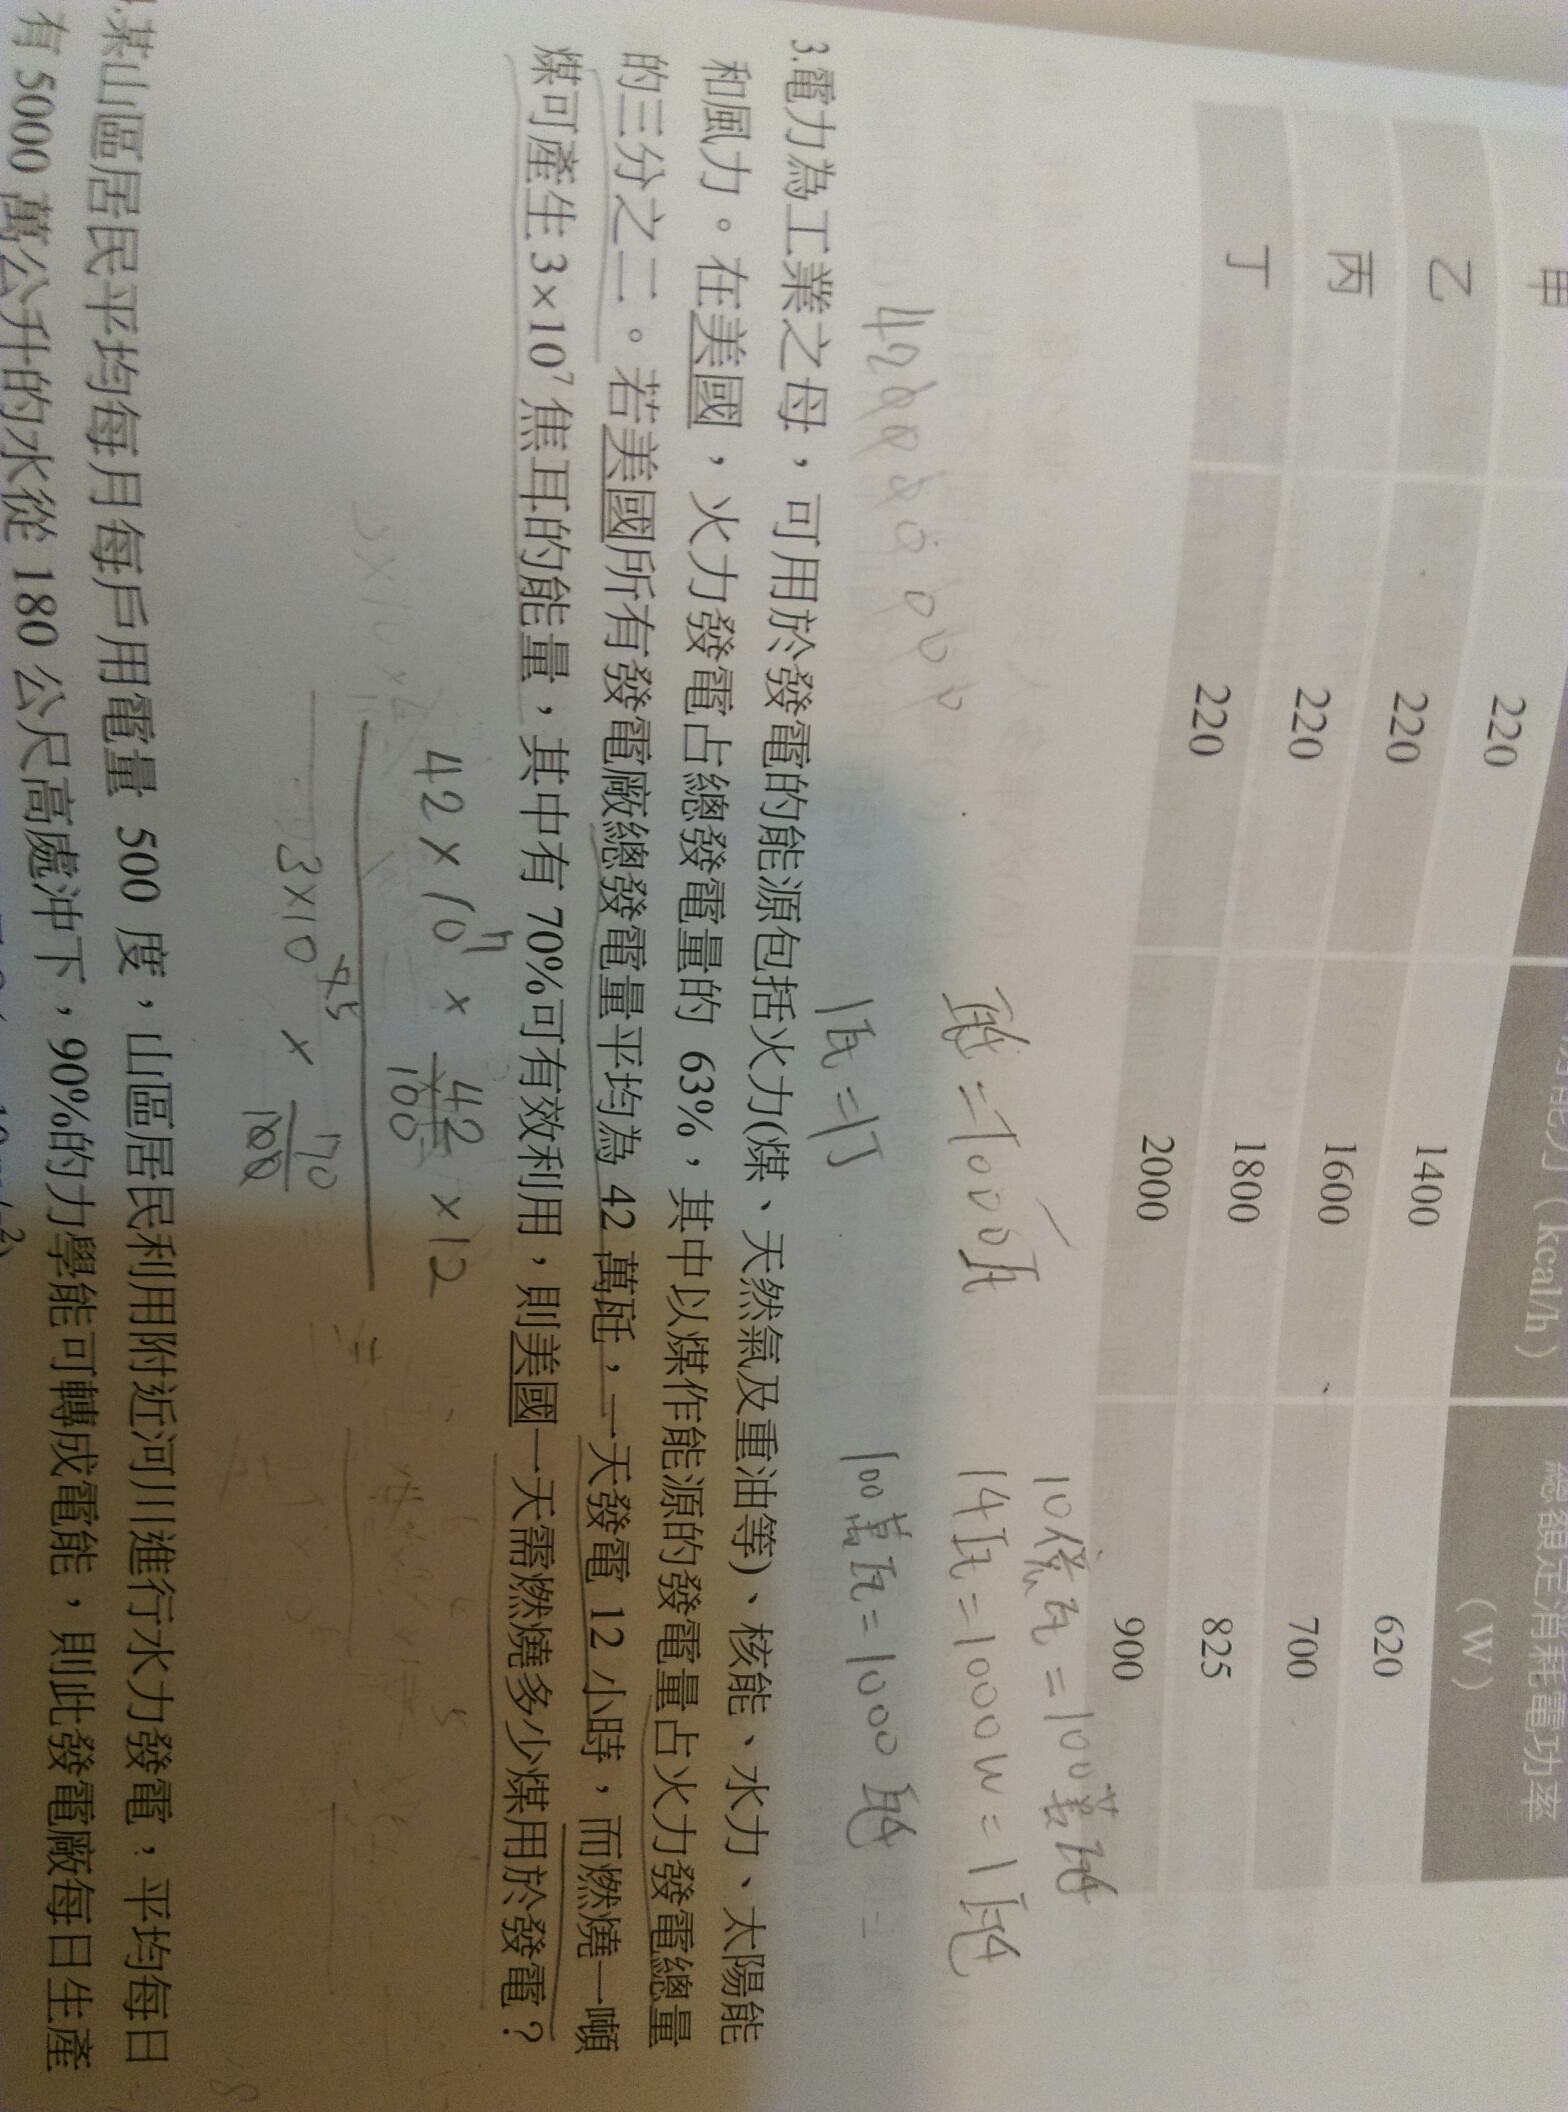 功能力(kcal/h)
總額定消耗電功率
(W)
甲 220 1400 620
乙 220 1600 700
丙 220 1800 825
丁 220 2000 900
10億瓦=100萬瓩
瓩=1000瓦
1千瓦=1000W=1瓩
1瓦=1J
100萬瓦=1000瓩
3.電力為工業之母,可用於發電的能源包括火力(煤、天然氣及重油等)、核能、水力、太陽能
和風力。在美國,火力發電占總發電量的 63%,其中以煤作能源的發電量占火力發電總量
的三分之二。若美國所有發電廠總發電量平均為 42 萬瓩,一天發電 12 小時,而燃燒一噸
煤可產生 3×10⁷ 焦耳的能量,其中有 70%可有效利用,則美國一天需燃燒多少煤用於發電?
42×10⁷ × 42/100 ×12
3×10 × 70/100
某山區居民平均每月每戶用電量 500 度,山區居民利用附近河川進行水力發電,平均每日
有 5000 萬公升的水從 180 公尺高處沖下,90%的力學能可轉成電能,則此發電廠每日生產